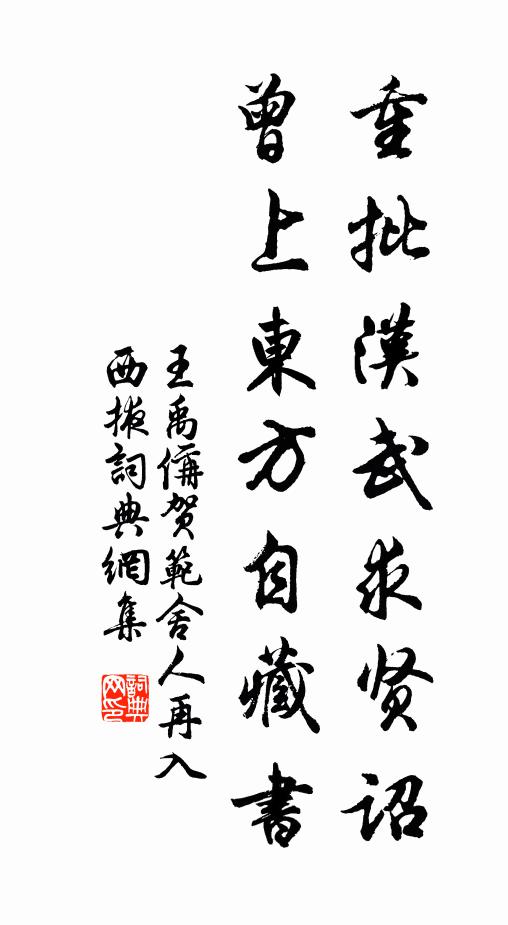 重批漢武求贤詔
曾上東方自藏書
王禹偁贺範舍人再入
西掖詞典網集
詞典
网印